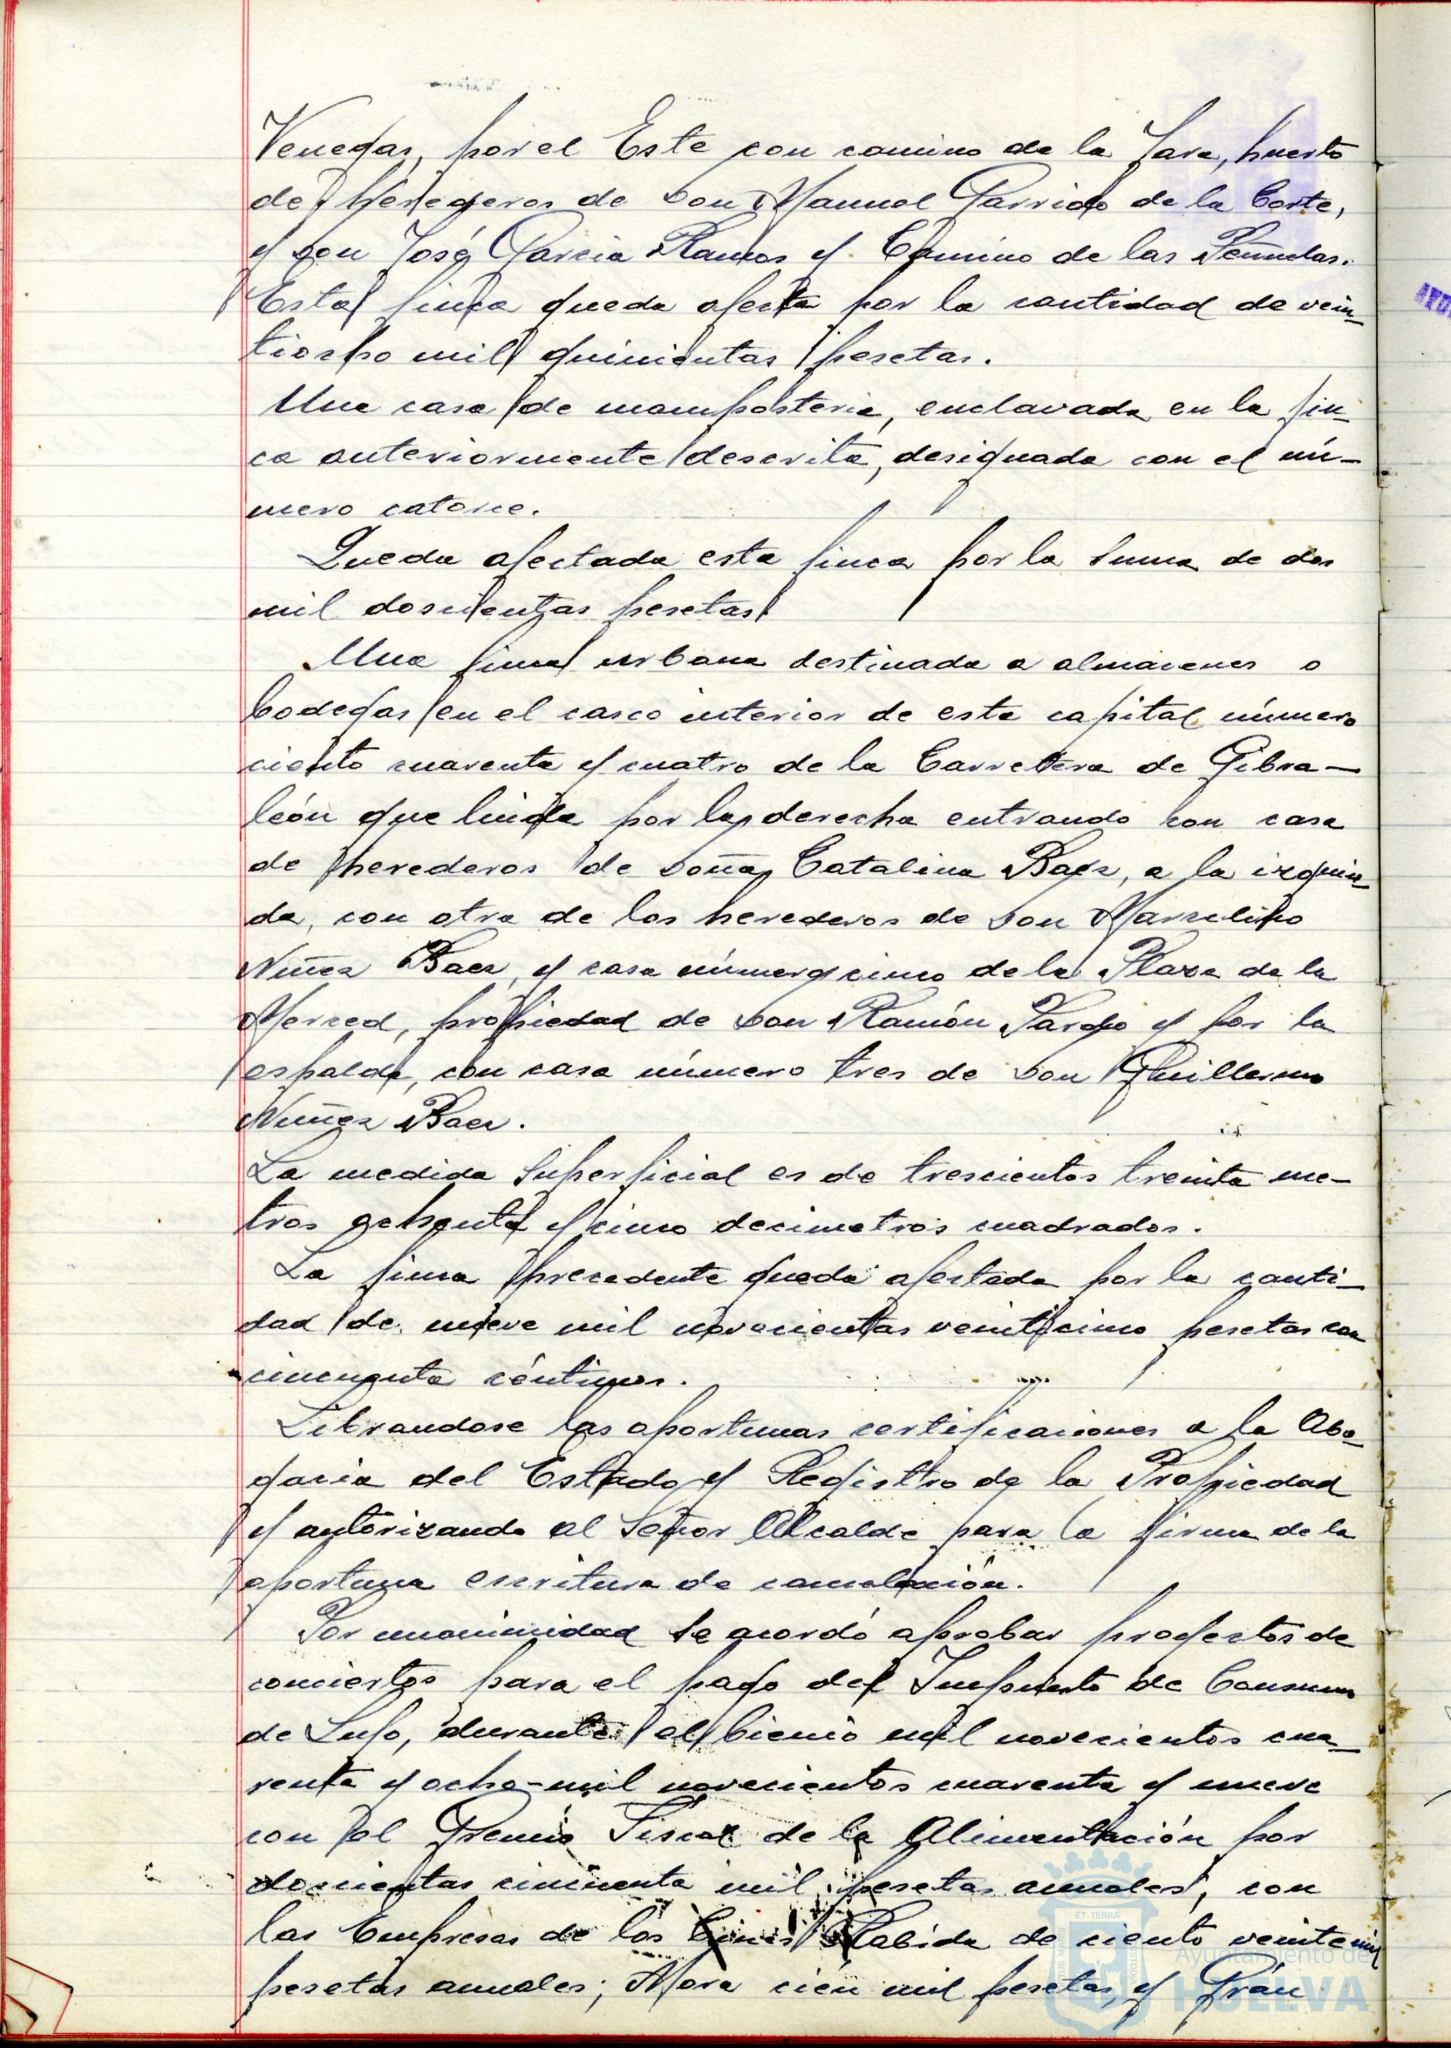 Venegas, por el Este con camino de la Jara, huerto
de herederos de Don Manuel Garrido de la Corte,
y Don José Garcia Ramos y Camino de las Peñuelas.
Esta finca queda afecta por la cantidad de vein-
tiocho mil quinientas pesetas.
Una casa de mamposteria, enclavada en la fin-
ca anteriormente descrita, designada con el nú-
mero catorce.
Queda afectada esta finca por la suma de dos
mil doscientas pesetas.
Una finca urbana destinada a almacenes o
bodegas en el casco interior de esta capital número
ciento cuarenta y cuatro de la Carretera de Gibra-
león que linda por la derecha entrando con casa
de herederos de Doña Catalina Baez, a la izquier-
da, con otra de los herederos de Don Marcelino
Nuñez Baez, y casa número cinco de la Plaza de la
Merced, propiedad de Don Ramón Pardo y por la
espalda, con casa número tres de Don Guillermo
Nuñez Baez.
La medida superficial es de trescientos treinta me-
tros ochenta y cinco decimetros cuadrados.
La finca precedente queda afectada por la canti-
dad de nueve mil novecientas veinticinco pesetas con
cincuenta céntimos.
Librandose las oportunas certificaciones a la Abo-
gacia del Estado y Registro de la Propiedad
y autorizando al Señor Alcalde para la firma de la
oportuna escritura de cancelación.
Por unanimidad se acordó aprobar proyectos de
conciertos para el pago del Impuesto de Consumos
de Lujo, durante el bienio mil novecientos cua-
renta y ocho-mil novecientos cuarenta y nueve
con el Gremio Fiscal de la Alimentación por
doscientas cincuenta mil pesetas anuales, con
las Empresas de los Cines Rabida de ciento veinte mil
pesetas anuales; Mora cien mil pesetas, y Gran
Ayuntamiento de
HUELVA